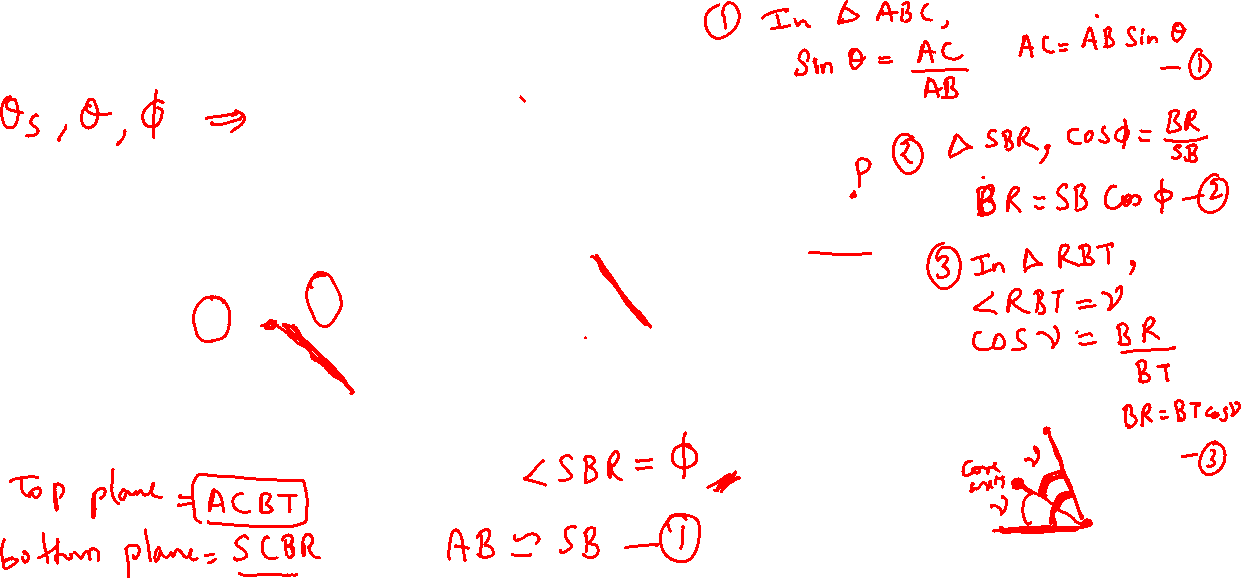 ① In Δ ABC,
Sin θ = AC/AB    AC = AB Sin θ —①
θs, θ, ϕ ⇒
② Δ SBR, cosϕ = BR/SB
P
BR = SB Cos ϕ —②
③ In Δ RBT,
∠RBT = ν
COS ν = BR/BT
BR = BT cosν —③
∠SBR = ϕ
Cone axis
ν
ν
Top plane = ACBT
bottom plane = SCBR
AB ≃ SB —①